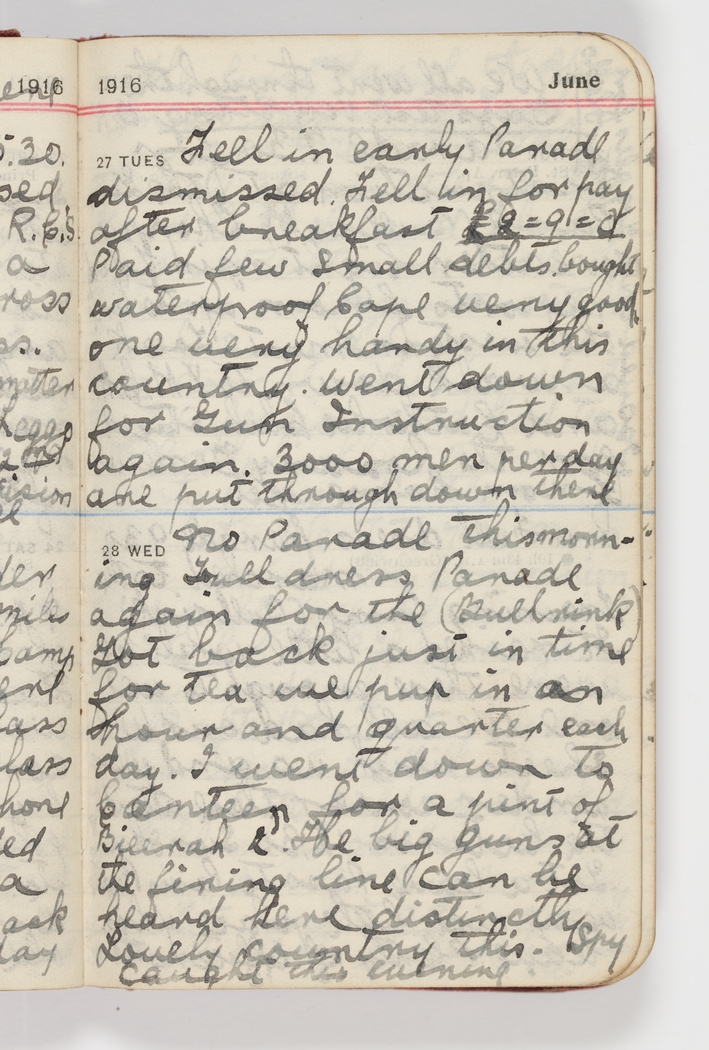 1916
5.30.
sed.
R.E.S.
a
ross
ss.
matter
Leggs
2nd
ision
der
miles
Camp
erl
lass
lass
hone
ded
a
ack
day
1916 June
27 TUES Fell in early Parade
dismissed. Fell in for pay
after breakfast £2=9=0
Paid few small debts. bought
waterproof Cape very good
one very handy in this
country. went down
for Gun Instruction
again. 3000 men per day
are put through down there
28 WED No Parade this morn-
ing Full dress Parade
again for the (Bullrink)
Got back just in time
for tea we pup in an
hour and quarter each
day. I went down to
Canteen for a pint of
Bieerah . The big guns at
the firing line can be
heard here distinctly
Lovely country this. Spy
caught this evening.